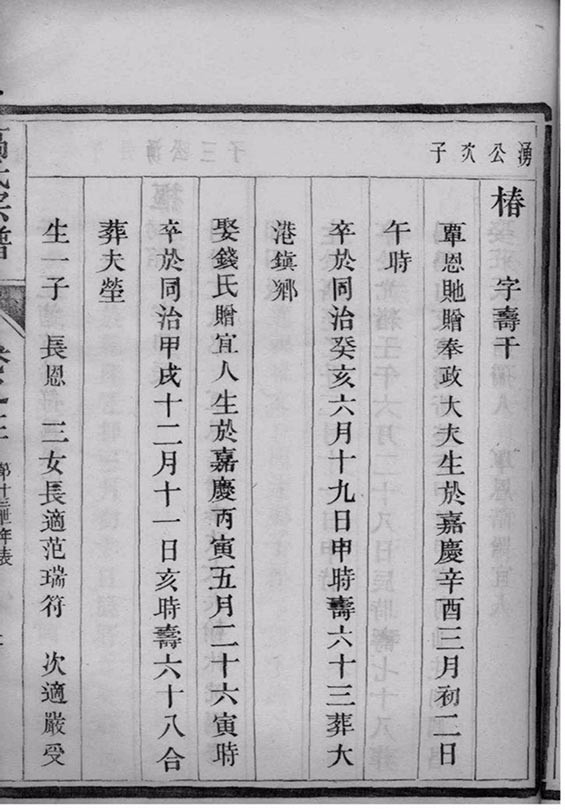 湧公次子
椿 字壽千
覃恩貤贈奉政大夫生於嘉慶辛酉三月初二日
午時
卒於同治癸亥六月十九日申時壽六十三葬大
港鎮鄉
娶錢氏贈宜人生於嘉慶丙寅五月二十六寅時
卒於同治甲戌十二月十一日亥時壽六十八合
葬夫塋
生一子 長恩 三女長適范瑞符 次適嚴受
氏宗譜
第十三世年表